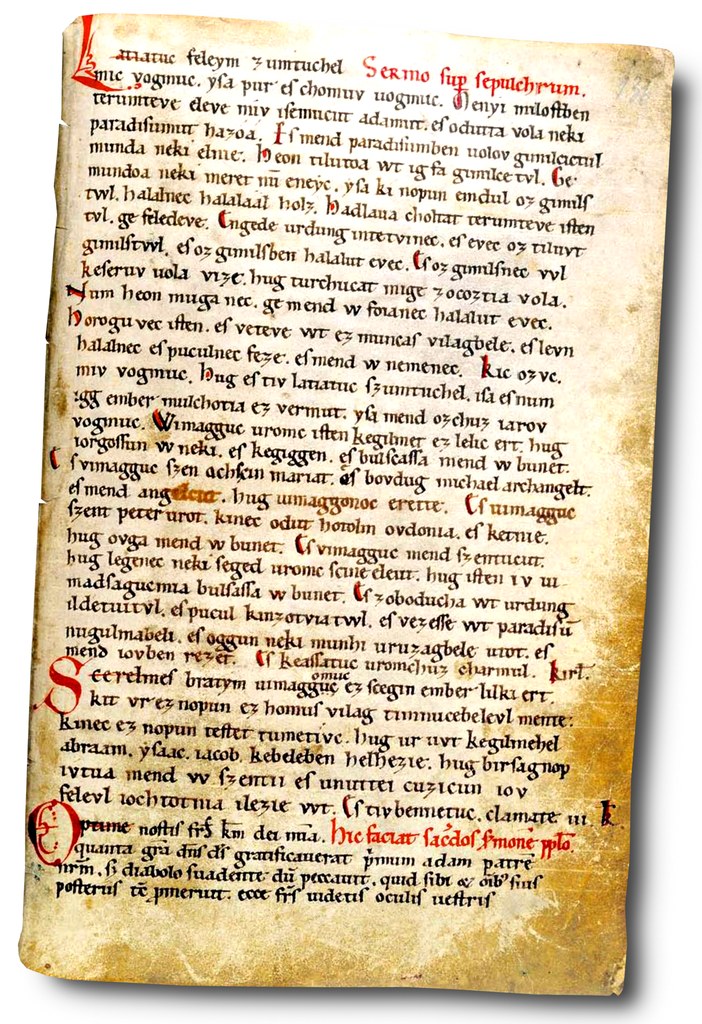 Latiatuc feleym zumtuchel Sermo sup sepulchrum.
mic vogmuc. yſa pur eſ chomuv uogmuc. Menyi miloſtben
terumteve eleve miv iſemucut adamut. eſ odutta vola neki
paradiſumut hazoa. Eſ mend paradiſumben uolov gimilcictul
munda neki elnie. Heon tilutoa wt ig fa gimilce tvl. Ge
mundoa neki meret nū eneyc. yſa ki nopun emdul oz gimilſ
twl. halalnec halalaal holz. Hadlaua choltat terumteve iſten
tvl. ge feledeve. Engede urdung intetvinec. eſ evec oz tiluvt
gimilſtvvl. eſ oz gimilſben halalut evec. Eſ oz gimilſnec vvl
keſeruv uola vize. hug turchucat mige zocoztia vola.
Num heon muga nec. ge mend w foianec halalut evec.
Horogu vec iſten. eſ veteve wt ez muncaſ vilagbele. eſ levn
halalnec eſ puculnec feze. eſ mend w nemenec. Kic ozvc.
miv vogmuc. Hug eſ tiv latiatuc szumtuchel. iſa eſ num
igg ember mulchotia ez vermut. yſa mend ozchuz iarov
vogmuc. Wimagguc uromc iſten kegilmet ez lelic ert. hug
iorgoſſun w neki. eſ kegiggen. eſ bulſcaſſa mend w bunet.
Eſ vimagguc szen achſcin mariat. eſ bovdug michael archangelt.
eſ mend angelcut. hug uimaggonoc erette. Eſ uimagguc
szent peter urot. kinec odut hotolm ovdonia. eſ ketnie.
hug ovga mend w bunet. Eſ vimagguc mend szentucut.
hug legenec neki seged uromc scine eleut. hug iſten iv ui
madſagucmia bulſaſſa w bunet. Eſ zoboducha wt urdung
ildetuitvl. eſ pucul kinzotviatwl. eſ vezeſſe wt paradiſū
nugulmabeli. eſ oggun neki munhi uruzagbele utot. eſ
mend iovben rezet. Eſ keaſſatuc uromchuz charmul. Kirł.
Scerelmeſ bratym uimagguc omuc ez scegin ember lilki ert.
kit vr ez nopun ez homuſ vilag timnucebeleul mente.
kinec ez nopun teſtet tumetivc. hug ur uvt kegilmehel
abraam. yſaac. iacob. kebeleben helhezie. hug birſagnop
ivtua mend vv szentii eſ unuttei cuzicun iov
felevl iochtotnia ilezie vvt. Eſ tiv bennetuc. clamate iii. k̄
Optime noſtiſ frſ km dei mia. hic faciat sac̄dos ſmonē pplo.
quanta gr̄a dn̄s dſ gratificauerat p̄mum adam patrē
nrm̄. & diabolo suadente dū peccauit. quid sibi & oīb' suiſ
poſteriſ p̄meruit. ecce frſ uidetiſ oculiſ ueſtriſ